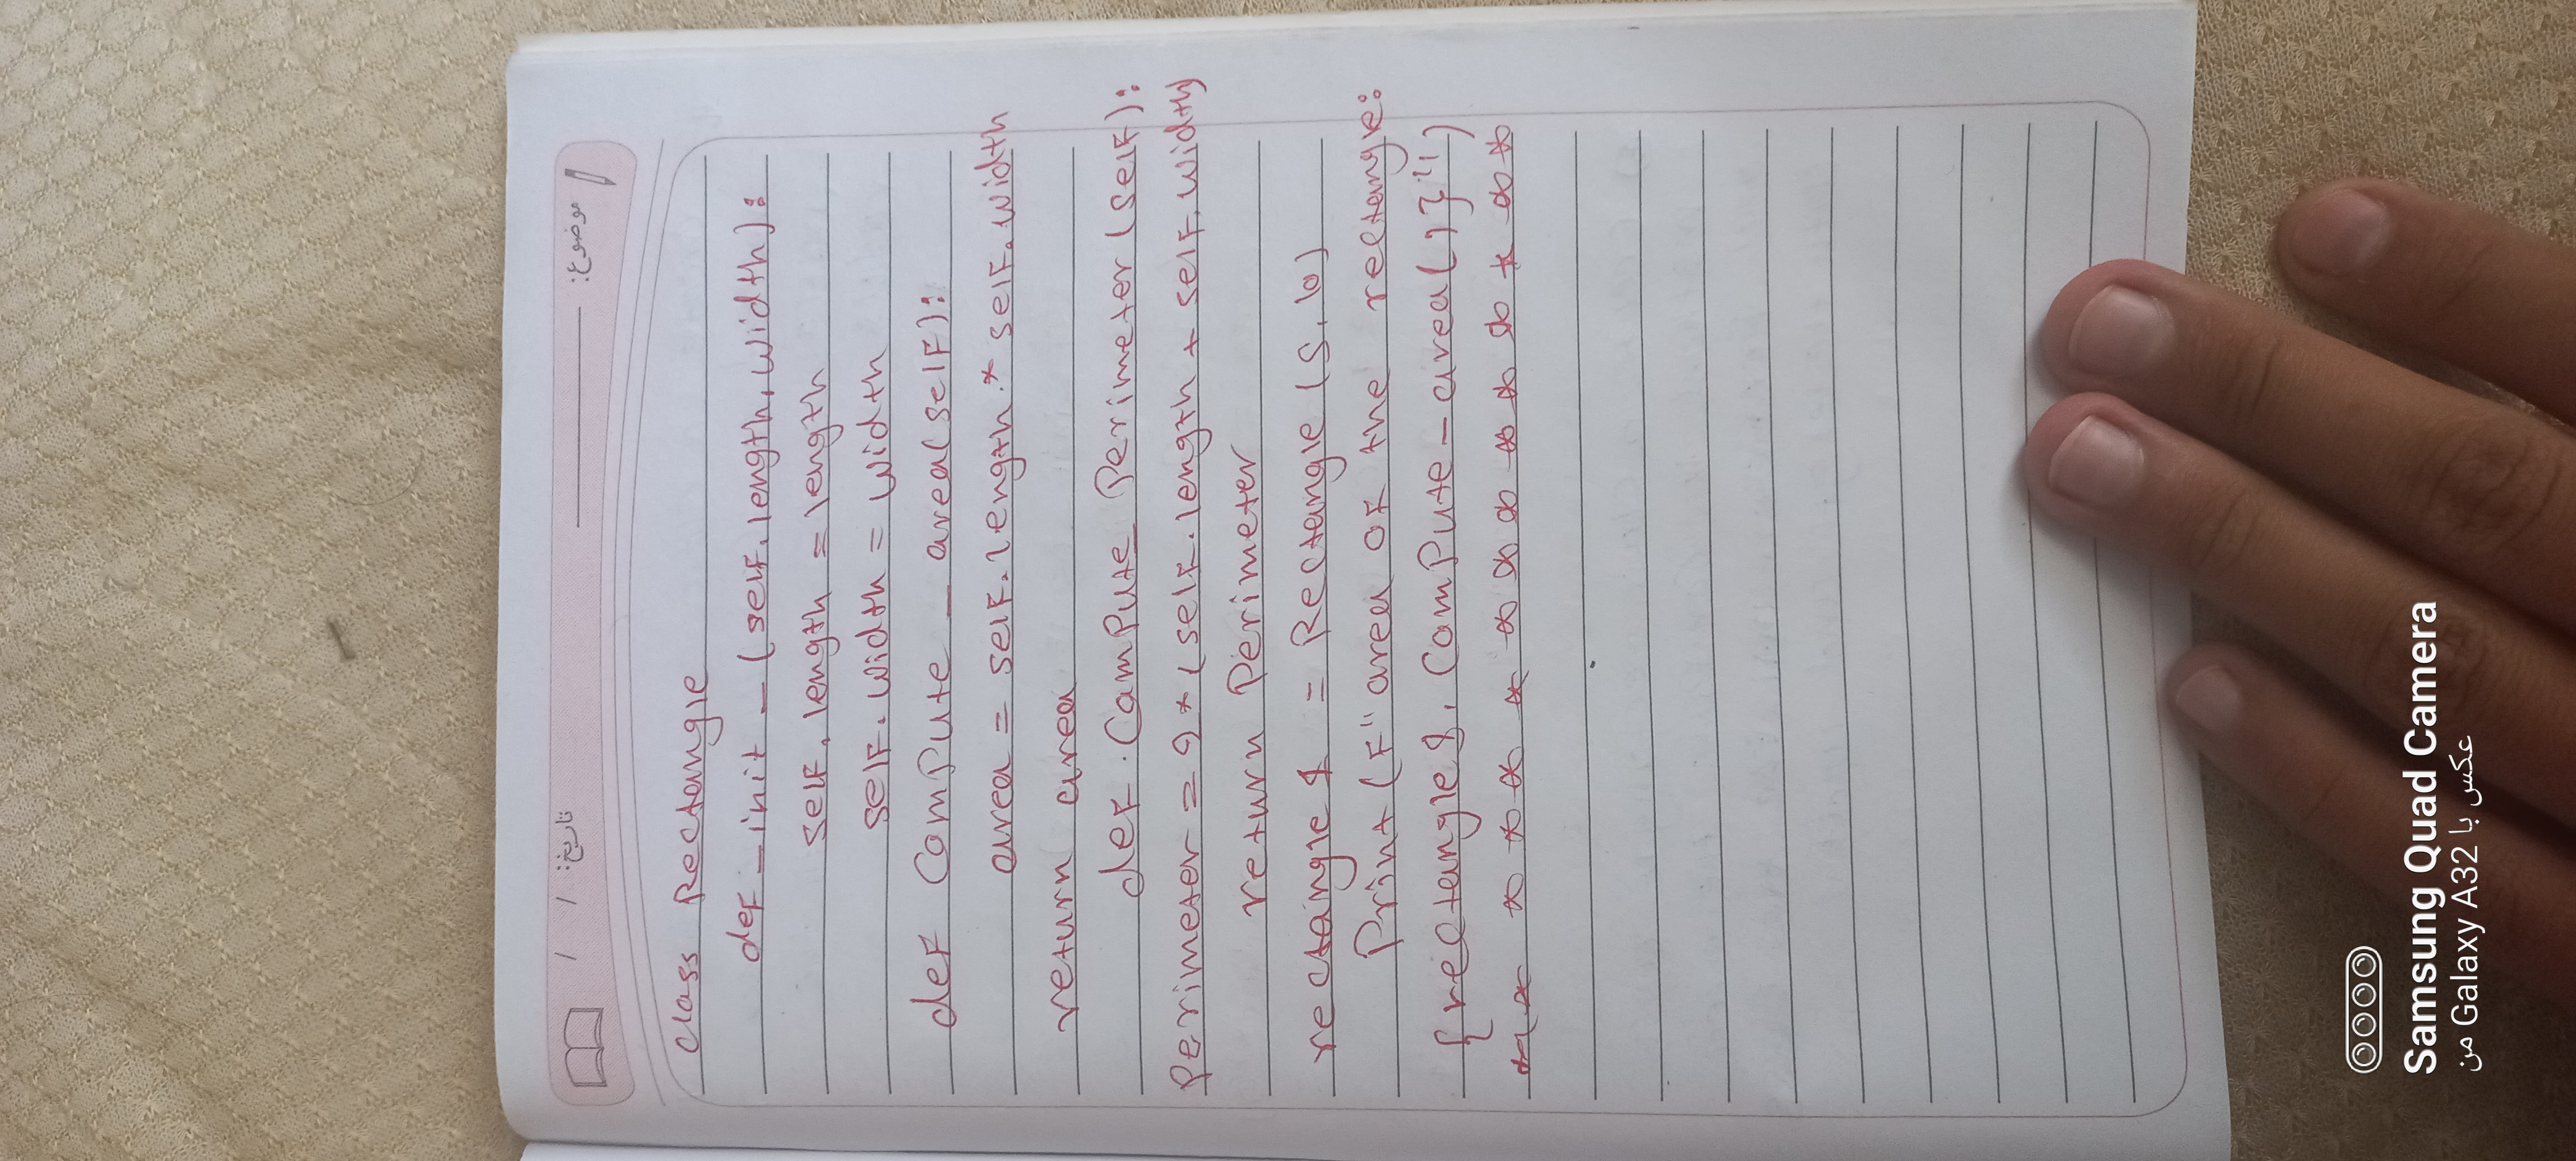 تاریخ: / / موضوع:
class Rectangle
def _init_(self.length,width):
self.length = length
self.width = width
def compute_area(self):
area = self.length * self.width
return area
def.Compute Perimeter(self):
Perimeter = 2*(self.length + self.width)
return Perimeter
rectangle1 = Rectangle(5,10)
Print(F"area of the rectangle:
{rectangle1.compute-area()}")
** * * * * * * * * * * * * *
Samsung Quad Camera
عکس با Galaxy A32 من